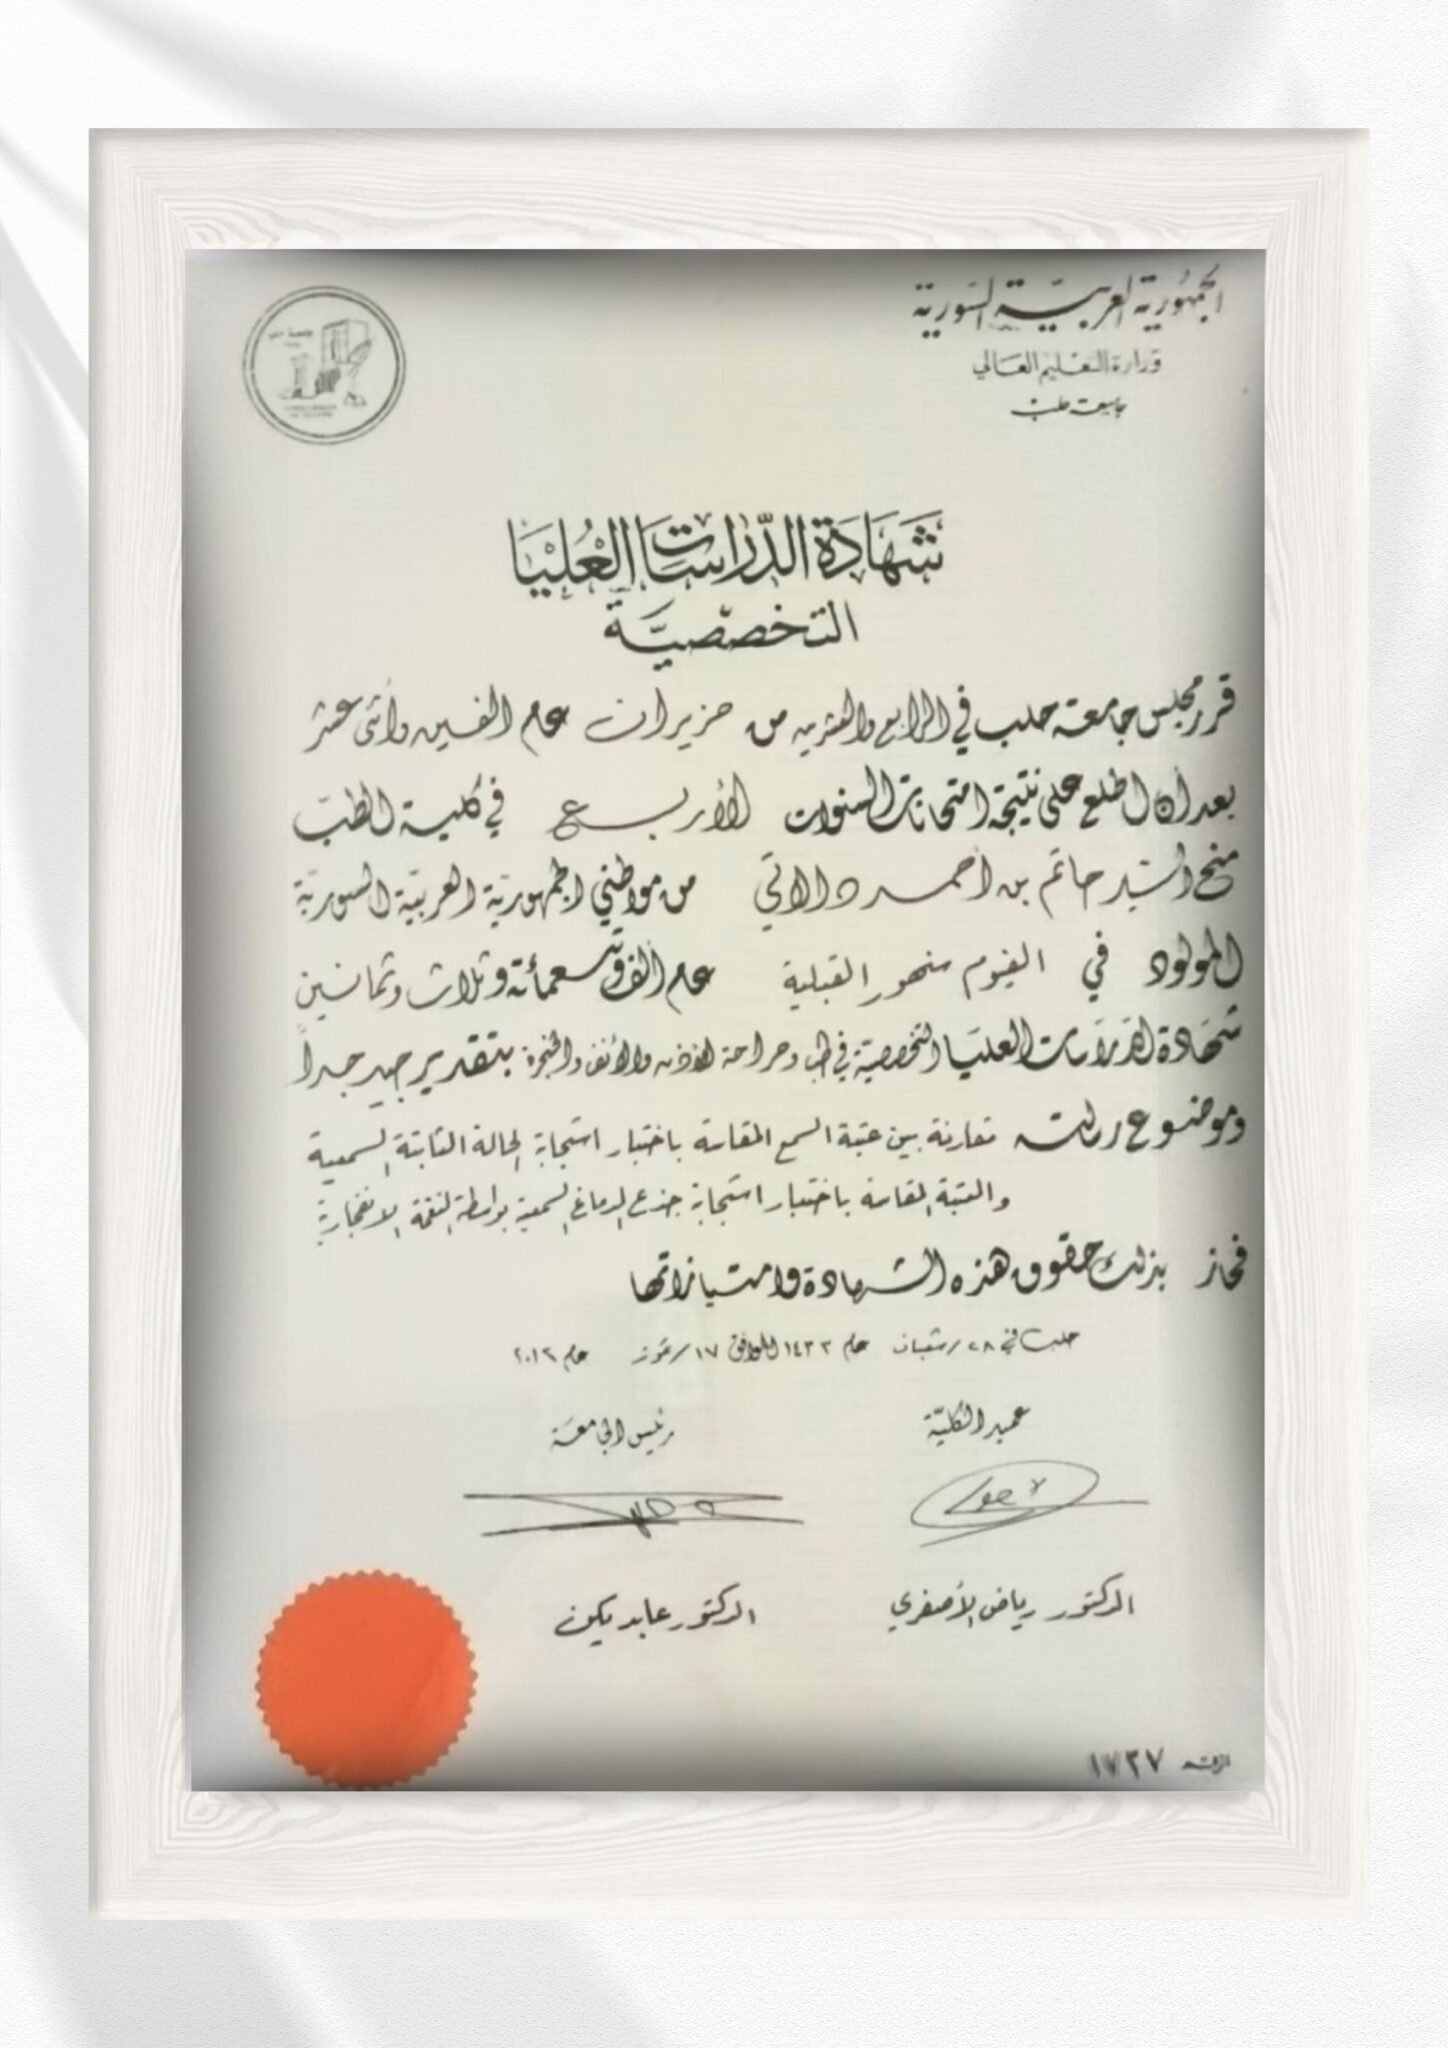 الجمهورية العربية السورية
وزارة التعليم العالي
جامعة حلب
شهادة الدراسات العليا
التخصصية
قرر مجلس جامعة حلب في الرابع والعشرين من حزيران عام الفين واثني عشر
بعد أن اطلع على نتيجة امتحانات السنوات الأربع في كلية الطب
منح السيد حاتم بن أحمد دالاتي من مواطني الجمهورية العربية السورية
المولود في الفيوم سنهور القبلية عام ألف وتسعمائة وثلاث وثمانين
شهادة الدراسات العليا التخصصية في طب وجراحة الأذن والأنف والحنجرة بتقدير جيد جداً
وموضوع رسالته مقارنة بين عتبة السمع المقاسة باختبار استجابة الحالة الثابتة السمعية
والعتبة المقاسة باختبار استجابة جذع الدماغ السمعية بواسطة النغمة الانفجارية
فحاز بذلك حقوق هذه الشهادة وامتيازاتها
حلب في ٢٨/شعبان عام ١٤٣٣ الموافق ١٧/تموز عام ٢٠١٢
عميد الكلية رئيس الجامعة
الدكتور رياض الأصفري الدكتور عابد يكن
الرقم ١٧٣٧